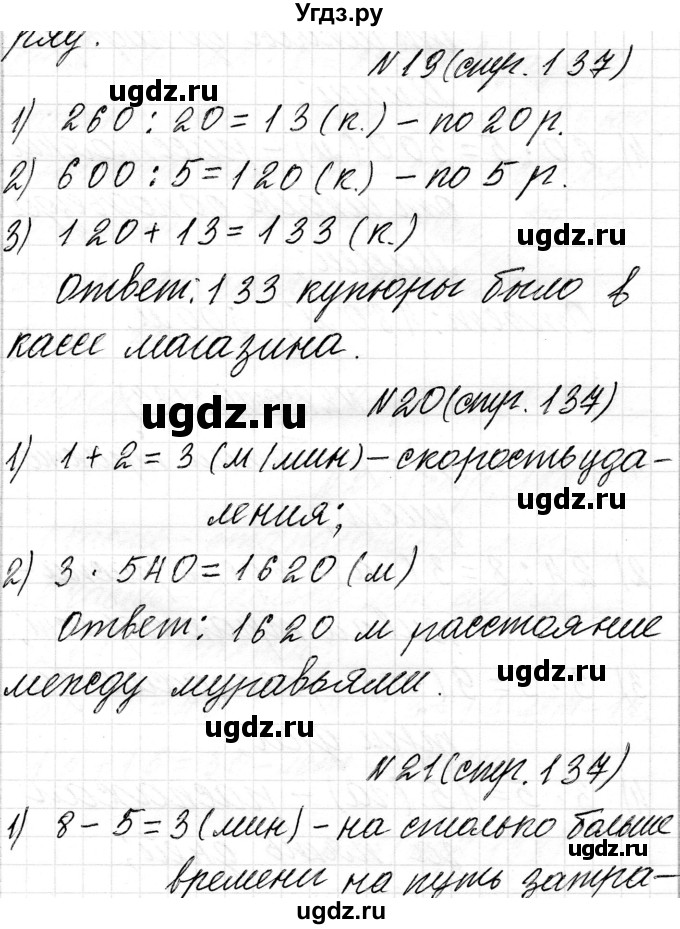 Угдз.ру
рлу.
N19(стр. 137)
ugdz.ru
1) 260 : 20 = 13 (к.) – по 20 р.
2) 600 : 5 = 120 (к.) – по 5 р.
3) 120 + 13 = 133 (к.)
ugdz.ru
Ответ: 133 купюры было в
кассе магазина.
ugdz.ru
N20(стр. 137)
1) 1 + 2 = 3 (м/мин) – скорость уда-
ugdz.ru
ления;
2) 3 · 540 = 1620 (м)
Ответ: 1620 м расстояние
ugdz.ru
между муравьями.
ugdz.ru
N21(стр. 137)
1) 8 – 5 = 3 (мин) – на столько больше
ugdz.ru
времени на путь затра-
ugdz.ru